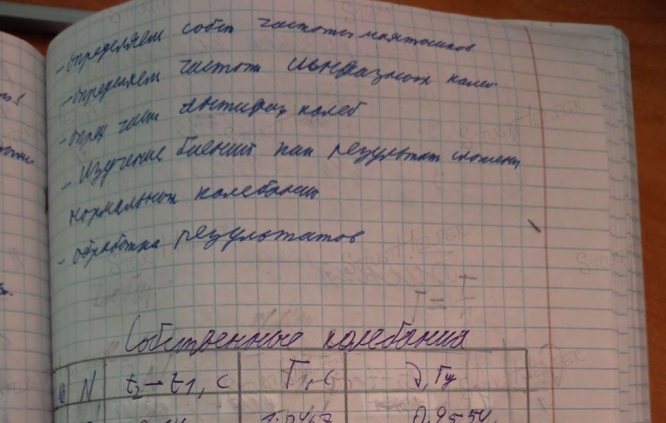 - определяем собст частоты маятников
- определяем частот синфазных колеб
- опред част антифаз колеб
- Изучение биений как результат сложения
нормальных колебаний
- обработка результатов
Собственные колебания
N t2-t1, c T, c ν, Гц
1.0467 0,9554